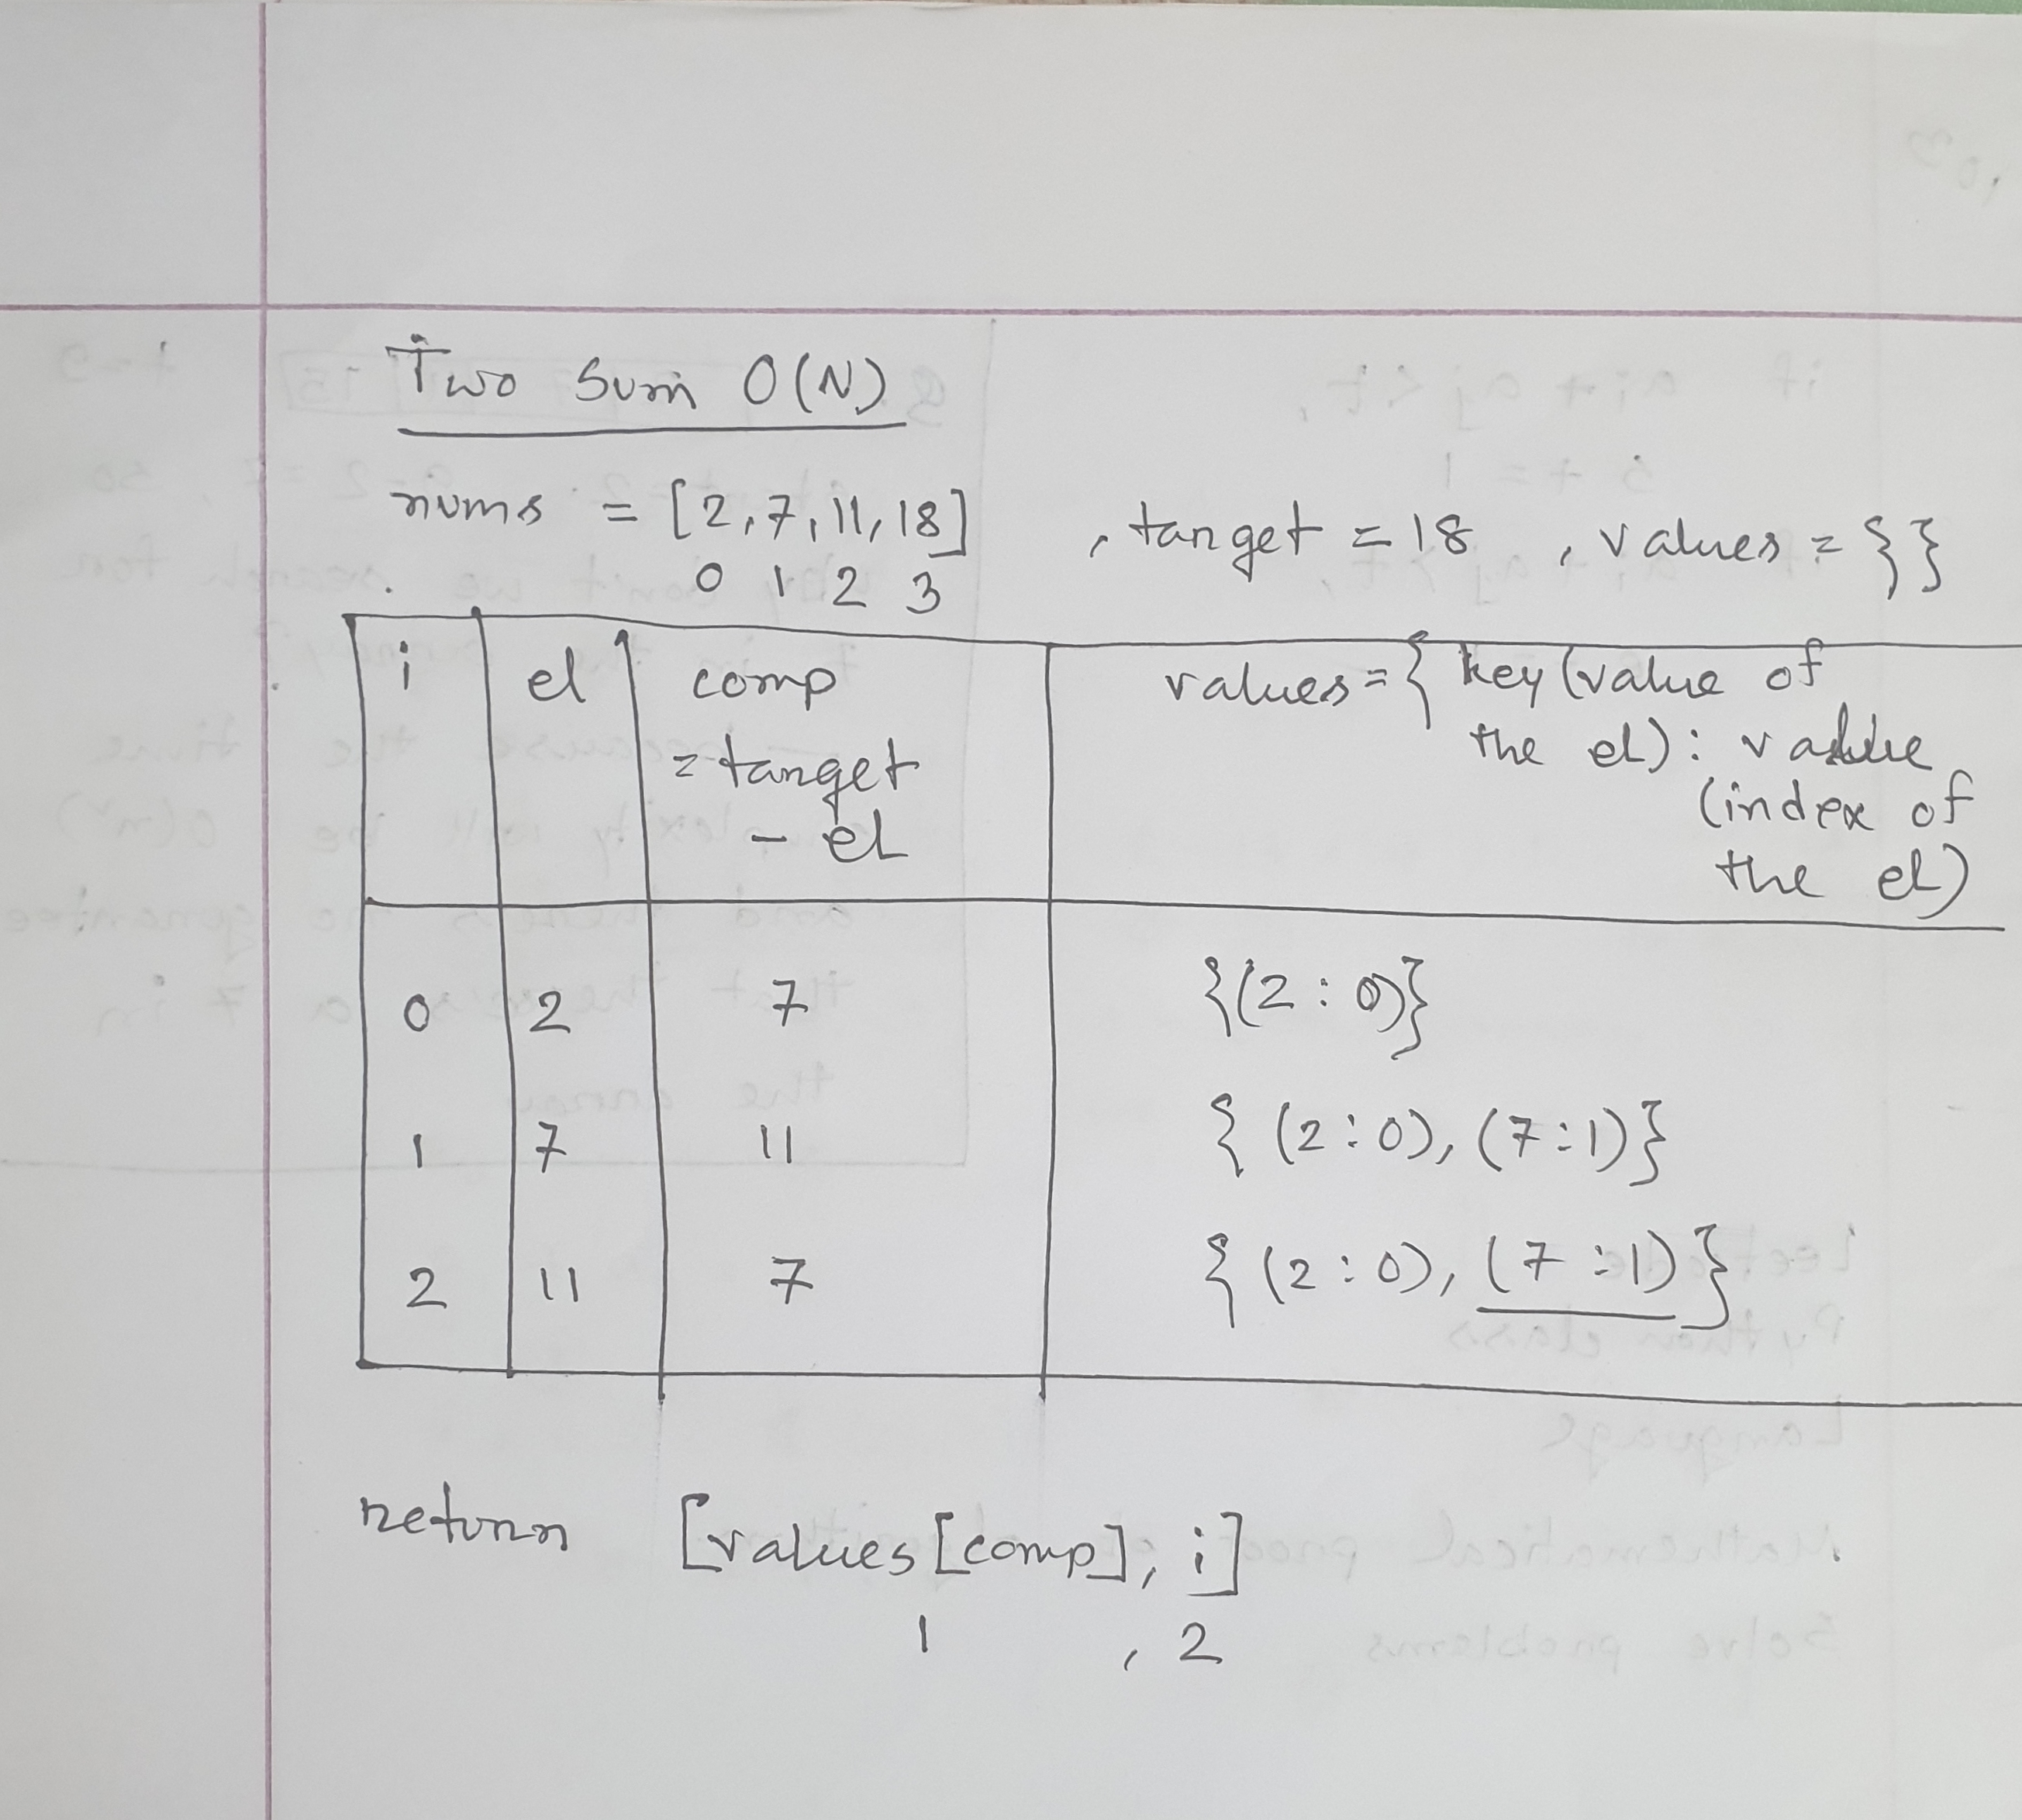 Two Sum O(N)
nums = [2,7,11,18] , target = 18 , values = {}
0 1 2 3
i el comp values = { key (value of
= target the el) : value
- el (index of
the el)
0 2 7 {(2:0)}
1 7 11 { (2:0), (7:1)}
2 11 7 { (2:0), (7:1)}
return [values[comp], i]
1 , 2